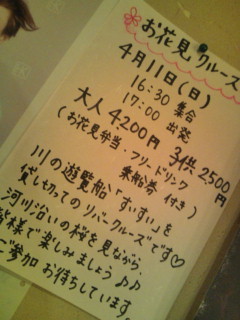 お花見クルーズ
4月11日(日)
16:30 集合
17:00 出発
大人 4,200円 子供 2,500円
(お花見弁当・フリードリンク
乗船券 付き)
川の遊覧船「すいすい」を
貸し切ってのリバークルーズです♡
河川沿いの桜を見ながら、
皆様で楽しみましょう♪♪
ご参加 お待ちしています。